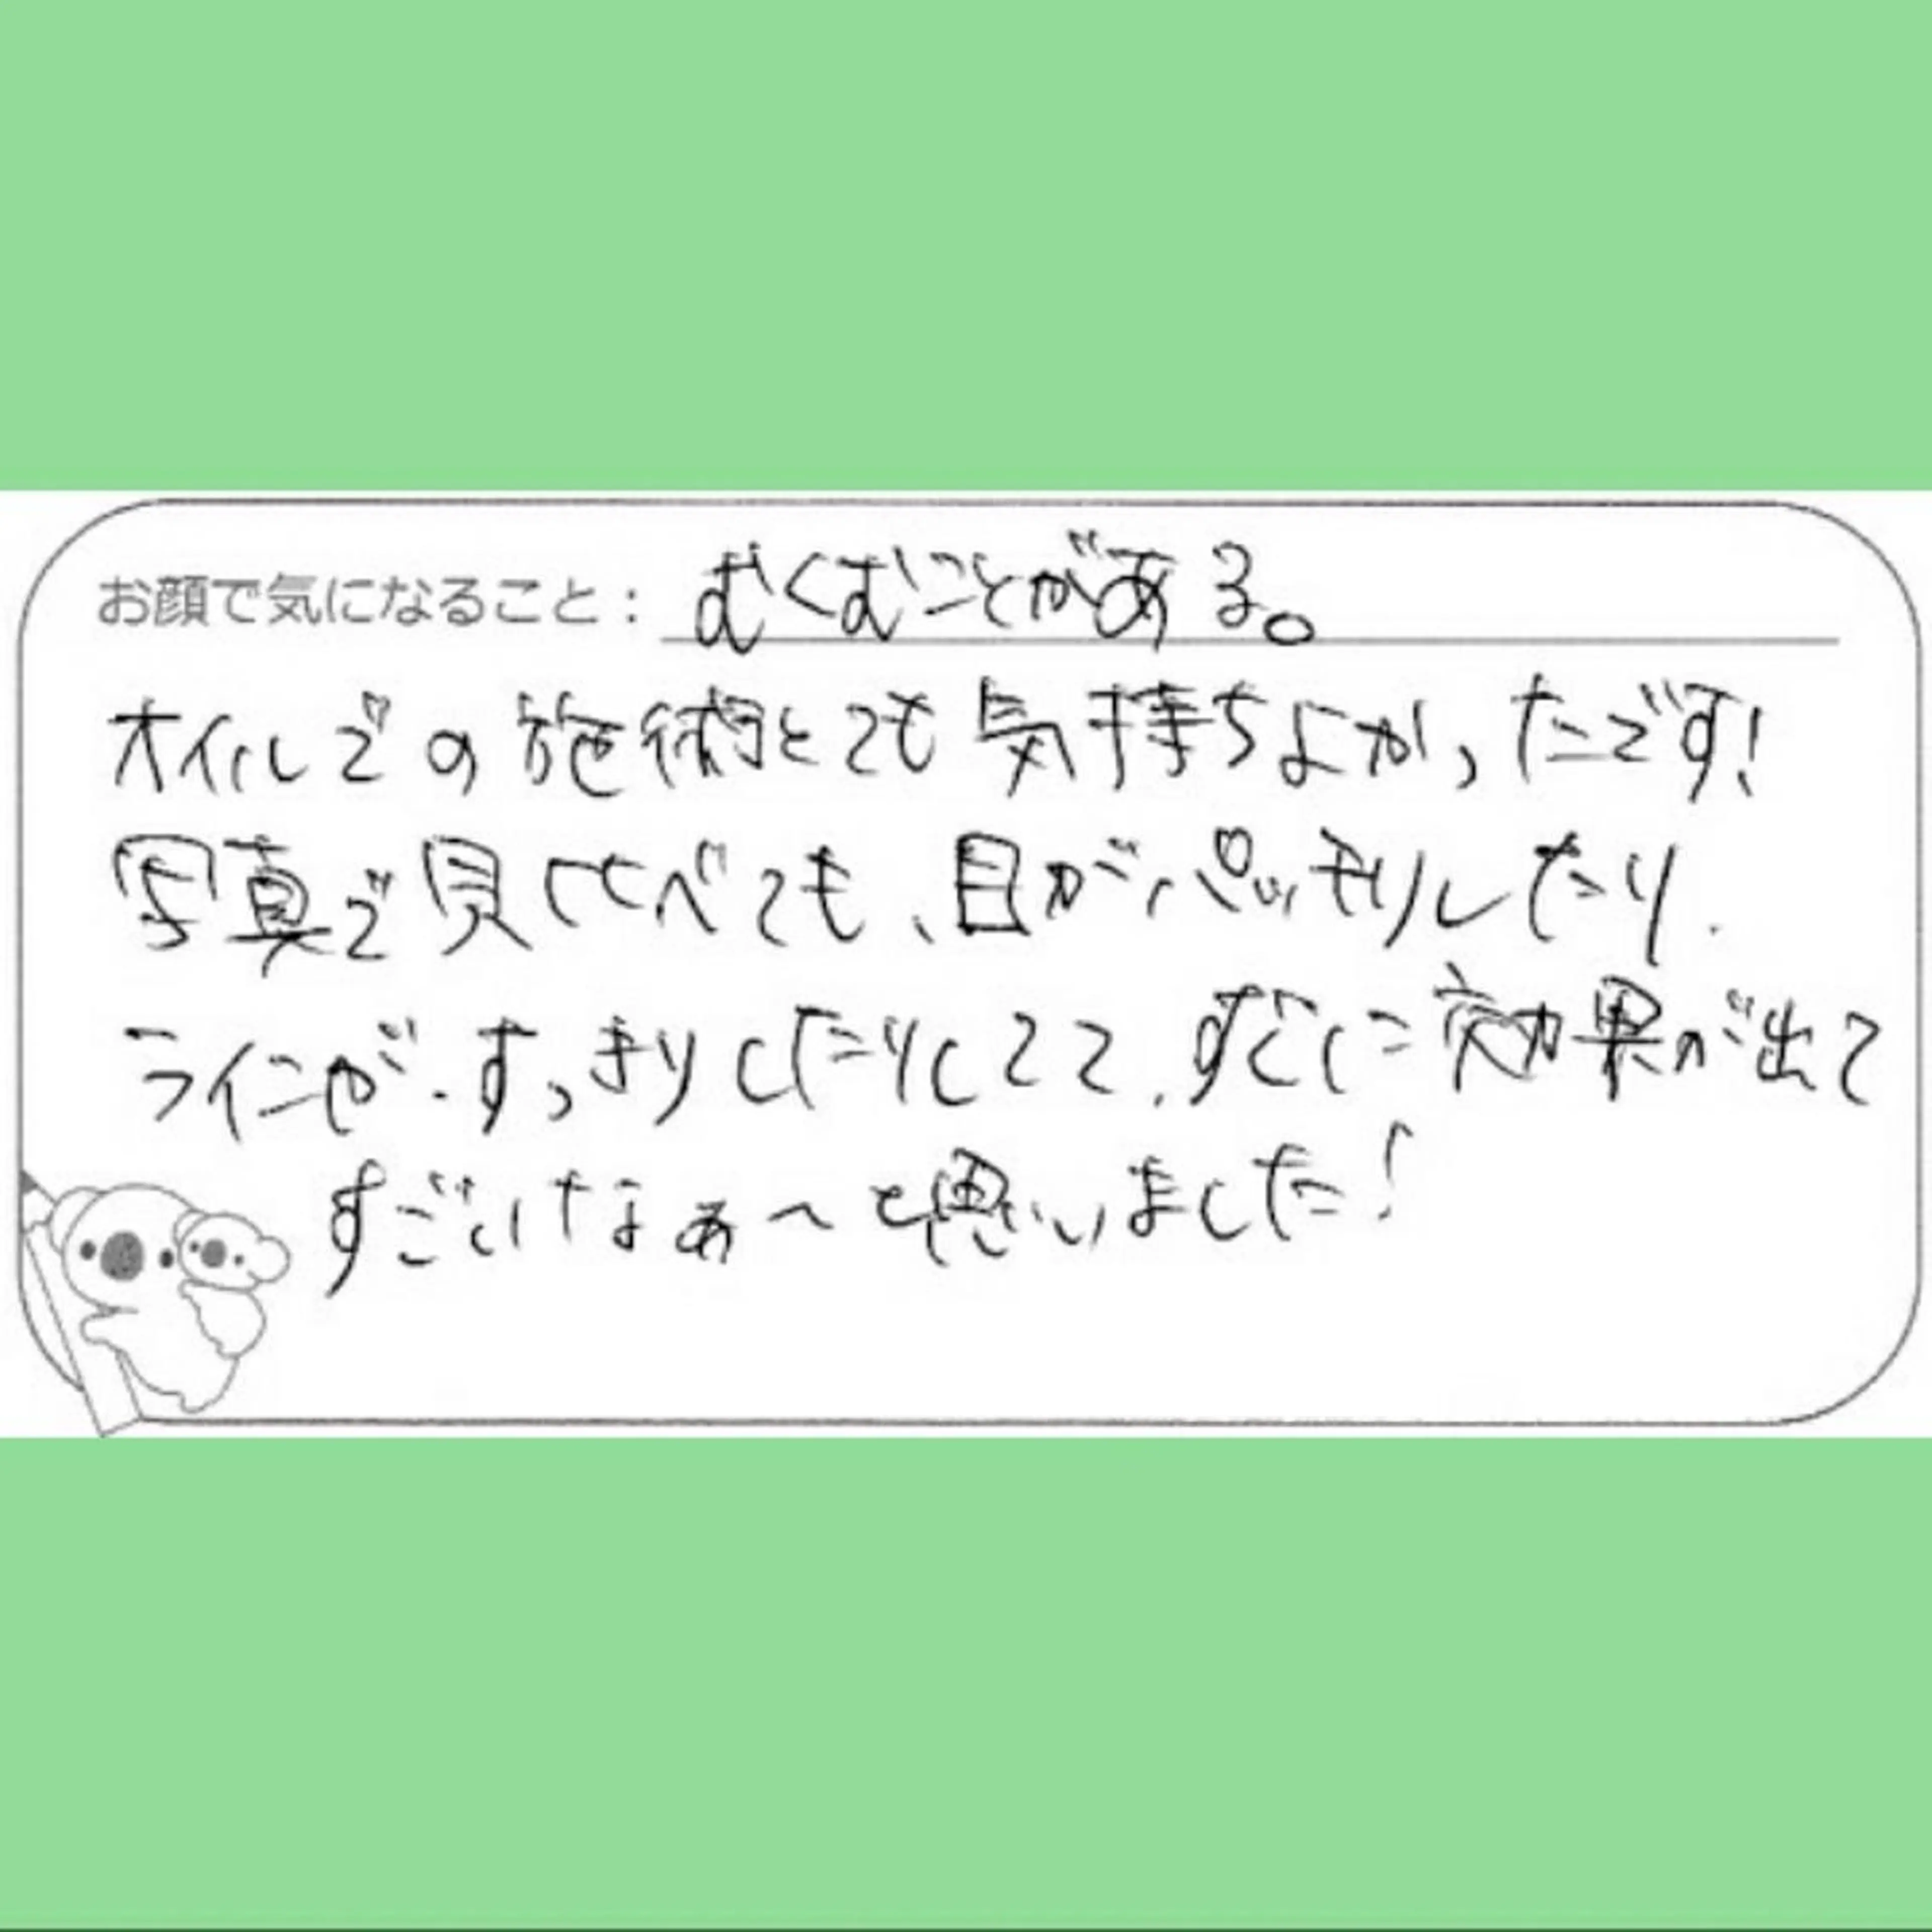 お顔で気になること：むくむことがある。
オイルでの施術とても気持ちよかったです！
写真で見比べても、目がパッチリしたり、
ラインが、すっきりしたりしてて、すぐに効果が出て
すごいなぁ〜と思いました！